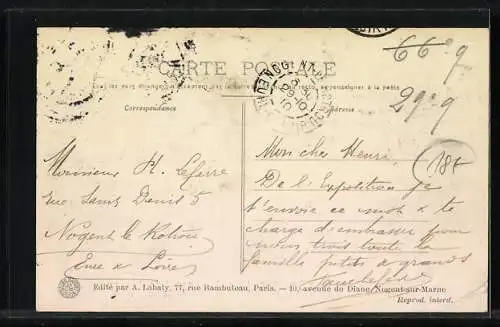 CARTE POSTALE
66 - 9
29 - 9
Correspondance
Adresse
18f
Monsieur H. Lefèvre
rue Saint Denis 5
Nogent le Rotrou
Eure & Loire
Mon cher Henri,
De l'Exposition je
t'envoie ce mot & te
charge d'embrasser pour
nous trois toute la
famille petits & grands
Edité par A. Lahaty, 77, rue Rambuteau, Paris. — 10, avenue de Diane, Nogent-sur-Marne
Reprod. interd.